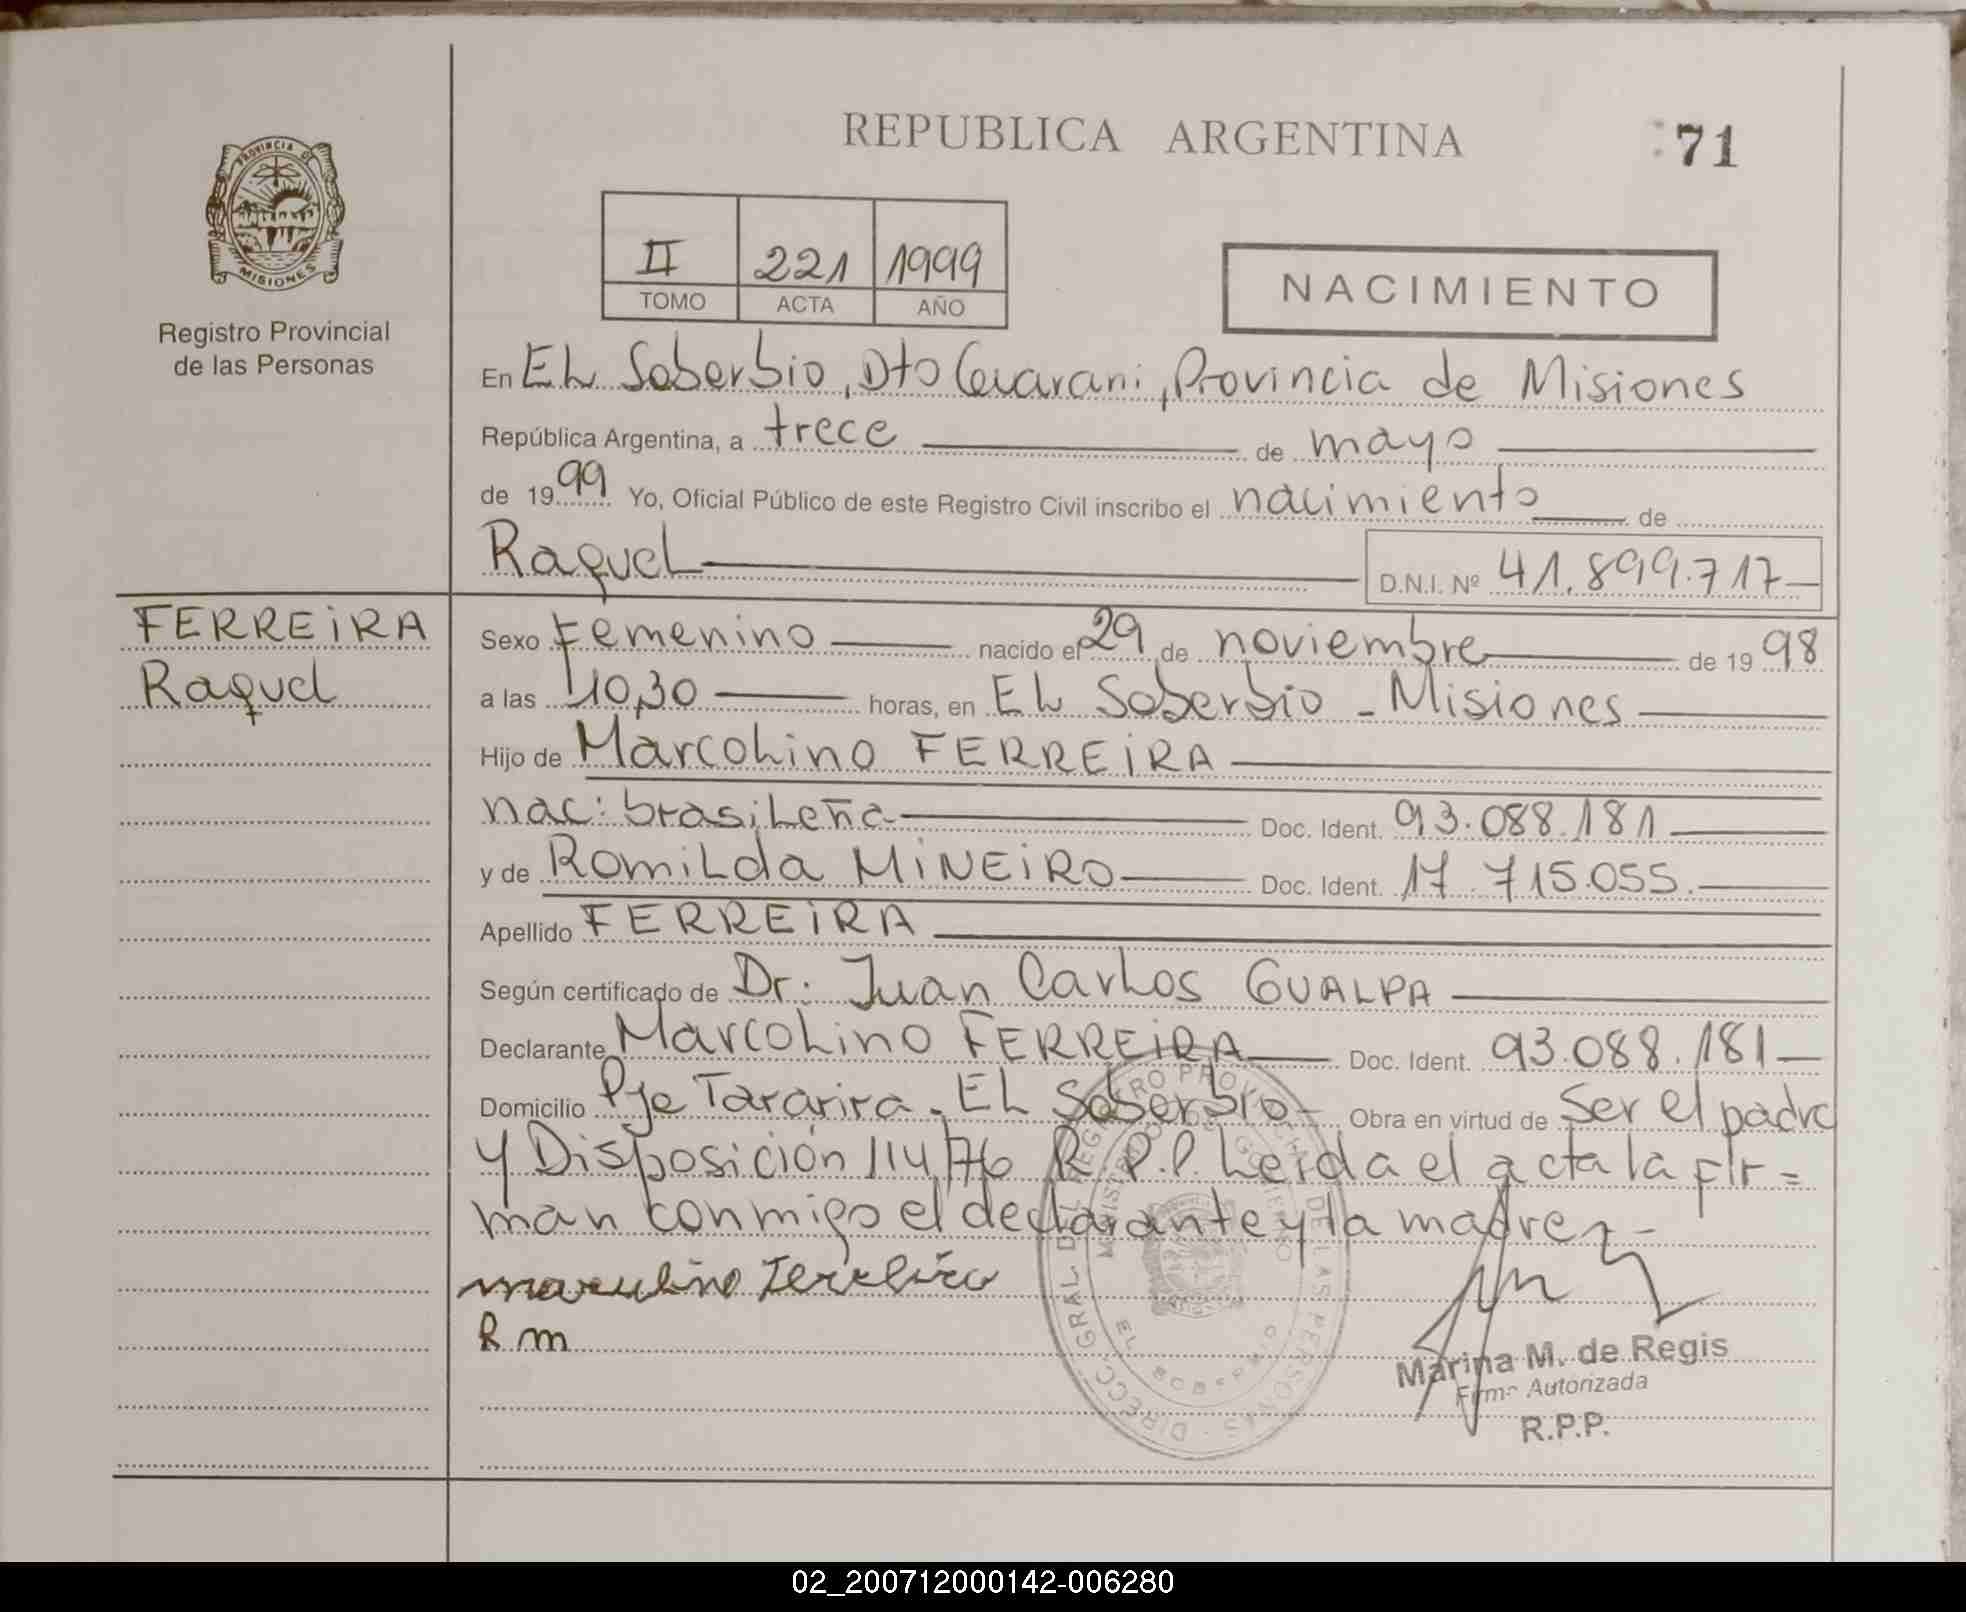 REPUBLICA ARGENTINA
71
PROVINCIA DE
MISIONES
Registro Provincial
de las Personas
II 221 1999
TOMO ACTA AÑO
NACIMIENTO
En EL Soberbio, Dto Guarani, Provincia de Misiones
República Argentina, a trece de mayo
de 1999 Yo, Oficial Público de este Registro Civil inscribo el nacimiento de
Raquel D.N.I. Nº 41.899.717
FERREIRA
Raquel
Sexo Femenino nacido el 29 de noviembre de 1998
a las 10,30 horas, en EL Soberbio - Misiones
Hijo de Marcolino FERREIRA
nac: brasileña Doc. Ident. 93.088.181
y de Romilda MINEIRO Doc. Ident. 17.715.055.
Apellido FERREIRA
Según certificado de Dr. Juan Carlos GUALPA
Declarante Marcolino FERREIRA Doc. Ident. 93.088.181
Domicilio Pje Tararira. EL Soberbio Obra en virtud de Ser el padre
y Disposición 114/76 R.P.P. Leida el acta la fir=
man conmigo el declarante y la madre
marculino Ferreira
R m
DIRECC. GRAL. DEL REGISTRO PROVINCIAL DE LAS PERSONAS
MINISTERIO DE GOBIERNO
EL SOBERBIO
Marina M. de Regis
Firma Autorizada
R.P.P.
02_200712000142-006280